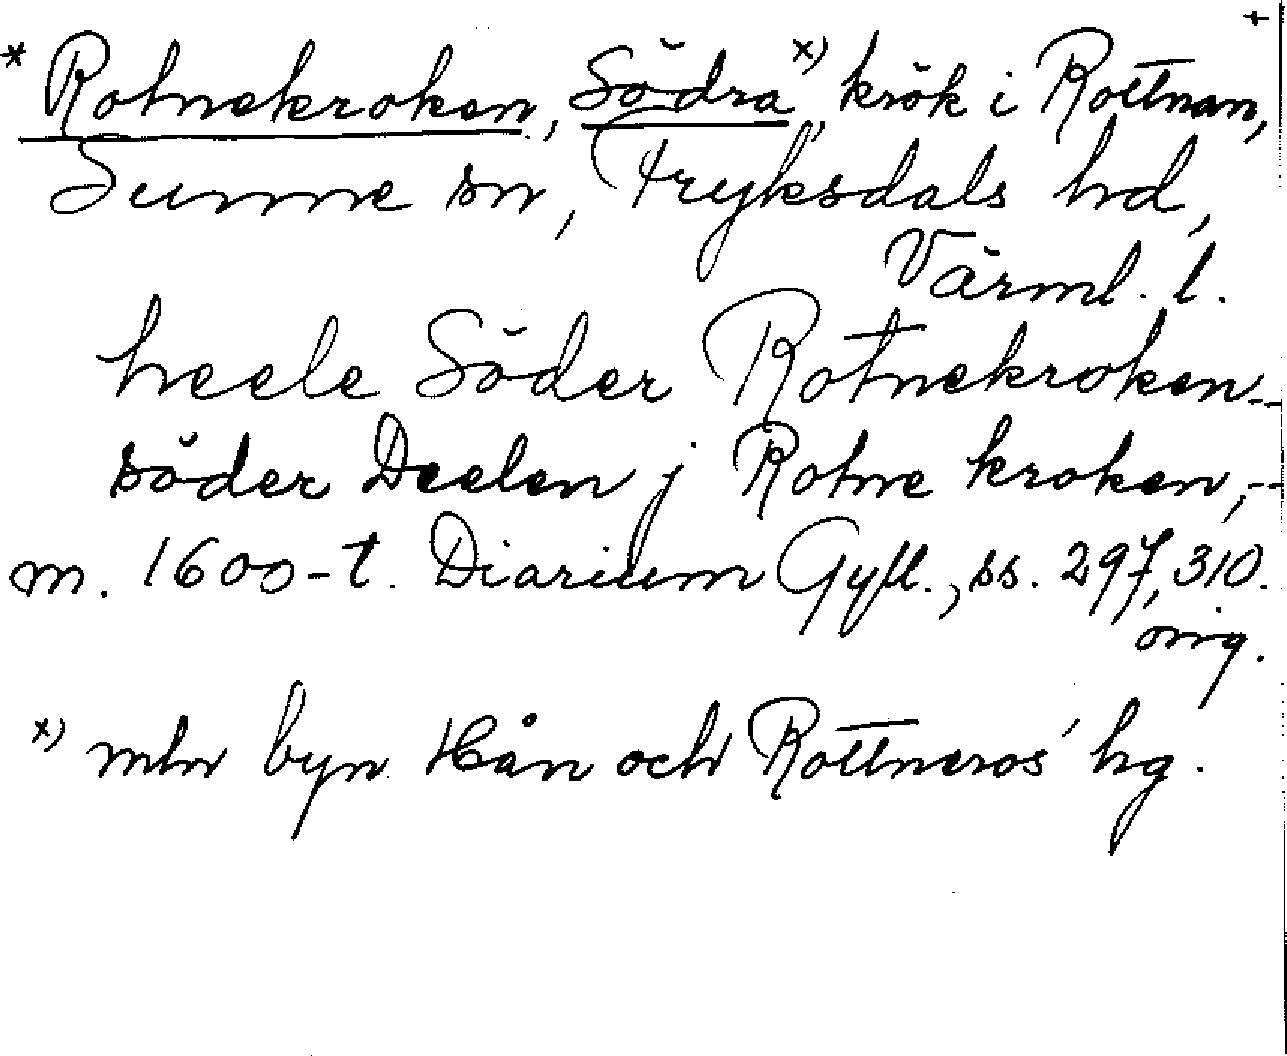 +
* Rotnekroken, Södra x), krök i Rottnan,
Sunne sn, Fryksdals hd,
Värml. l.
heele Söder Rotnekroken--
söder Deelen j Rotne kroken,--
m. 1600-t. Diarium Gyll., ss. 297, 310.
orig.
x) mln byn Hån och Rottneros' hg.